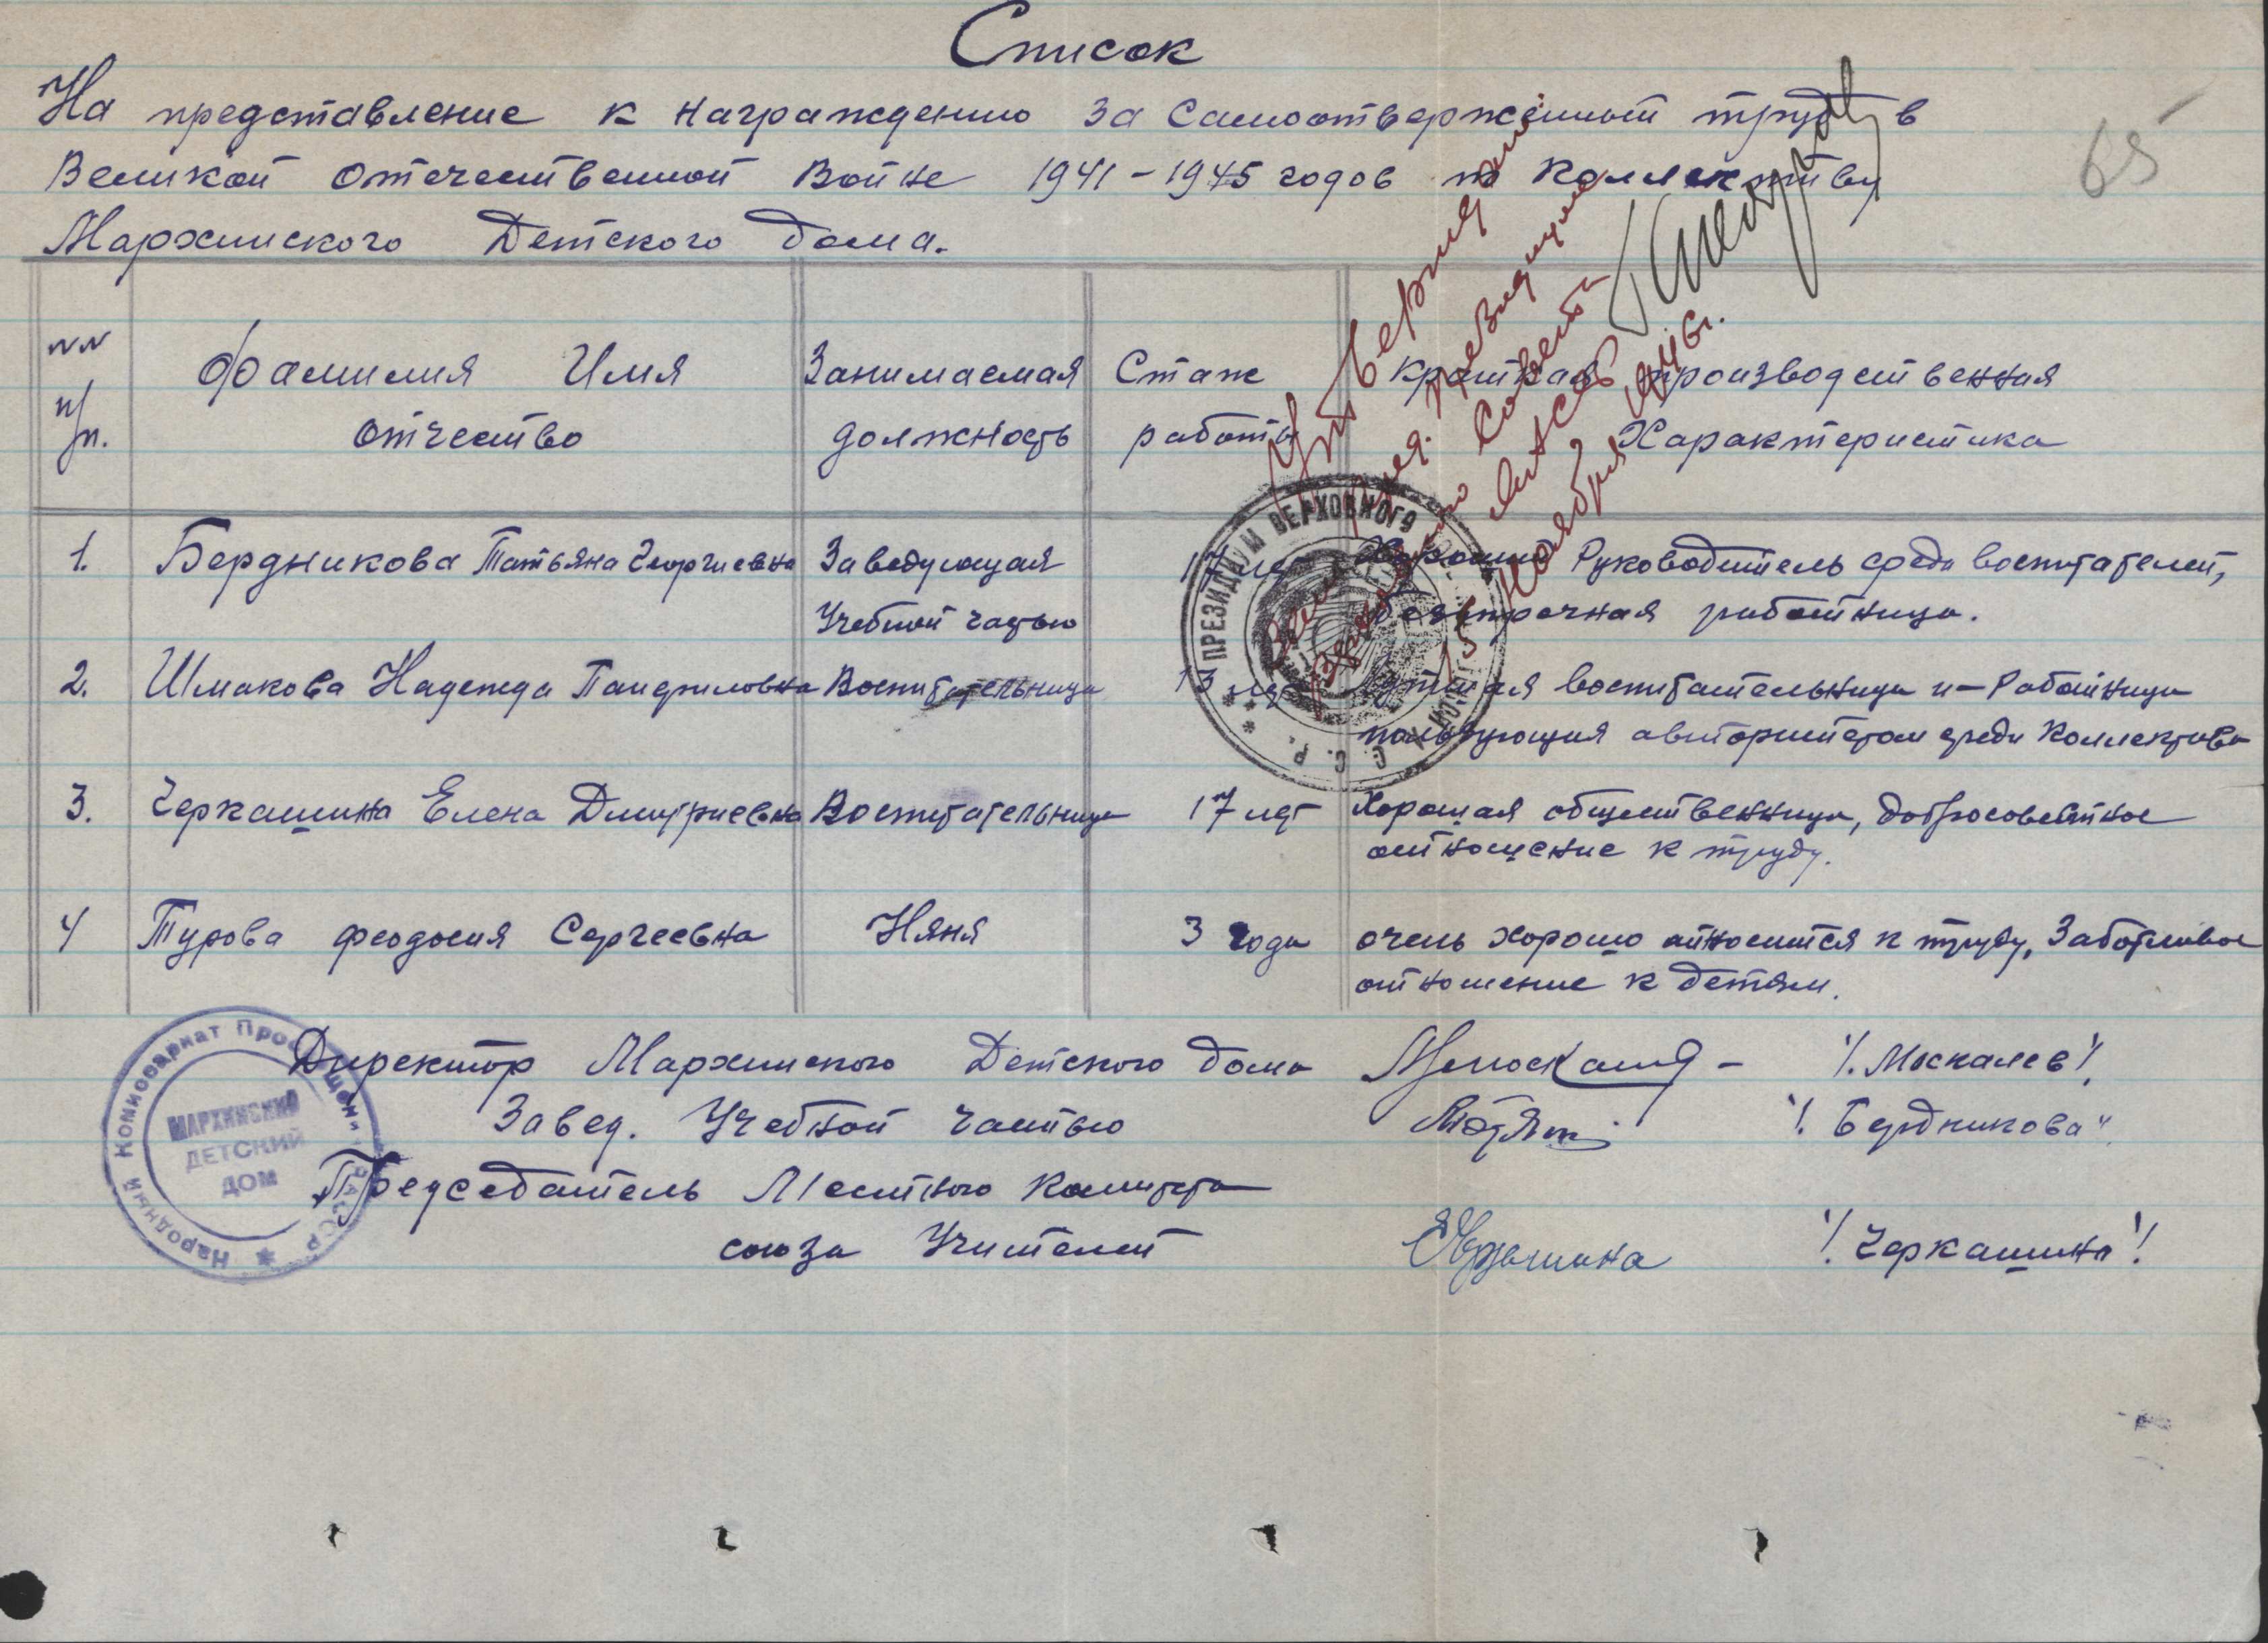 Список
65
На представление к награждению за самоотверженный труд в
Великой отечественной Войне 1941-1945 годов по коллективу
Мархинского Детского дома.
NN п/п.
Фамилия Имя отчество
Занимаемая должность
Стаж работы
Краткая производственная Характеристика
Утверждаю
Зам. Пред. Президиума
Верховного Совета
ЯАССР
5 ноября 1946г.
ПРЕЗИДИУМ ВЕРХОВНОГО
С. С. Р.
1. Бердникова Татьяна Георгиевна Заведующая 17 лет Хороший Руководитель среди воспитателей,
Учебной частью безупречная работница.
2. Шмакова Надежда Панфиловна Воспитательница лет воспитательница и Работница
пользующия авторитетом среди Коллектива
3. Черкашина Елена Дмитриевна Воспитательница 17 лет Хорошая общественница, добросовестное
отношение к труду.
4 Турова Феодосия Сергеевна Няня 3 года очень хорошо относится к труду, Заботливое
отношение к детям.
Директор Мархинского Детского дома /. Москалев /.
Завед. Учебной частью /. Бердникова "
Председатель Местного Комитета
союза Учителей Черкашина /Черкашина/
Народный Комиссариат Просвещения ЯАССР
МАРХИНСКИЙ
ДЕТСКИЙ
ДОМ